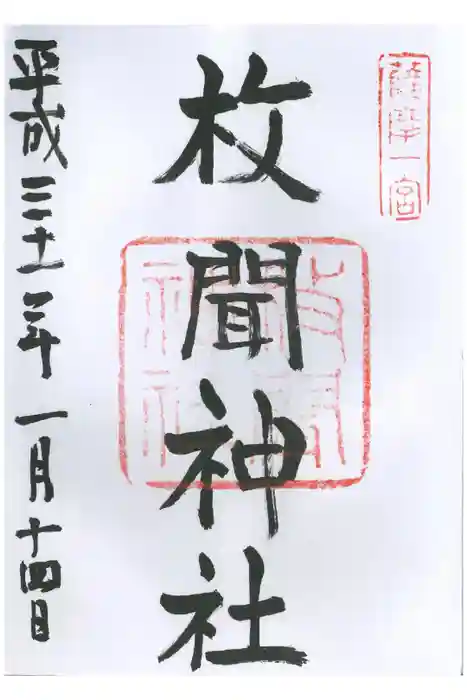 薩摩一宮
枚聞神社
枚聞
神社
平成三十一年一月十四日